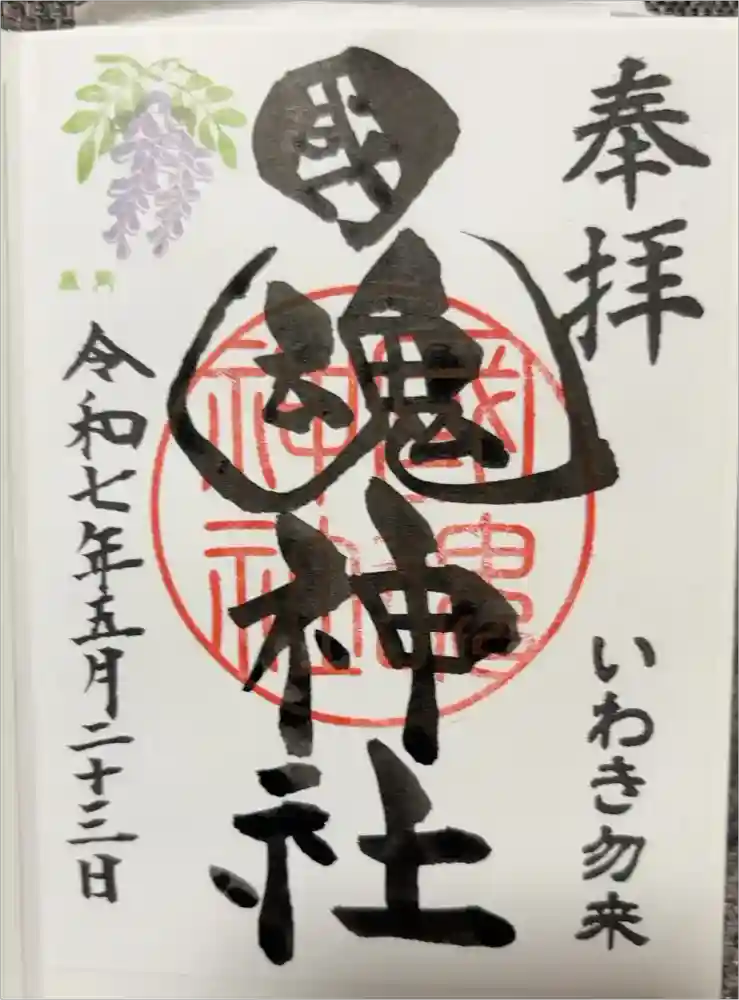 奉拝
いわき勿来
國魂神社
國魂神社
令和七年五月二十三日